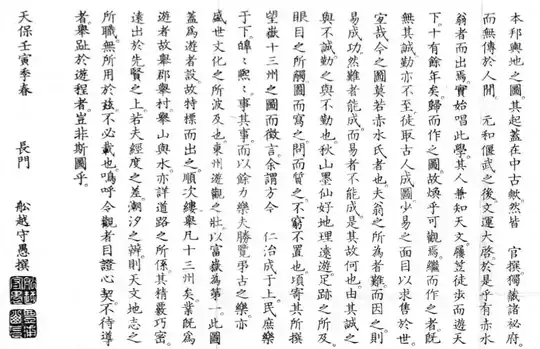 本邦輿地之圖其起蓋在中古歟然皆　官撰獨藏諸祕府
而無傳於人間　元和偃武之後文運大啓於是乎有赤水
翁者而出焉實始唱此學其人兼知天文屢徒步而遊天
下十有餘年矣歸而作之圖故煥乎可觀焉繼而作之者旣
無其誠勤亦不至徒取古人成圖少易之面目以求售於世
寔哉今之圖莫若赤水氏者也夫翁之所爲者難而因之則
易成功然難者能成而易者不能成是其故何也由其誠之
與不誠勤之與不勤也秋山墨仙好地理遠遊足跡之所及
眼目之所觸圖而寫之問而質之不窮不置也頃寄其所撰
望嶽十三州之圖而徵言余謂方今　仁治成于上民庶樂
于下皥〻熈〻事其事而以餘力樂夫勝覽弔古之樂亦
盛世文化之所波及也東州遊觀之壯以富嶽爲第一此圖
蓋爲遊者設故特標而出之順次縷舉凡十三州矣業旣爲
遊者故舉郡舉村舉山與水亦詳道路之所係其精覈巧密
遠出於先賢之上若夫經度之差潮汐之辨則天文地志之
所職無所用於玆不必載也嗚呼令觀者目證心契不待導
者舉趾於遊程者豈非斯圖乎
天保壬寅季春　長門　舩越守愚撰